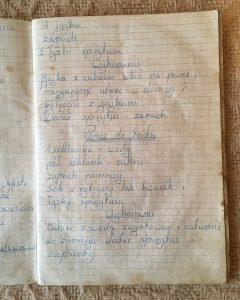 4 jajka
zapach
2 łyżki spirytusu
Wykonanie
Jajka z cukrem ubić na parze,
margarynę utrzeć w donicy i
połączyć z jajkami.
Dodać spirytus i zapach.
Poncz do tortu
1 szklanka - wody
pół szklanki - cukru
zapach rumowy
Sok z cytryny lub kwasek i
łyżkę spirytusu
Wykonanie
Cukier z wodą zagotować i ostudzić
do zimnego dodać spirytus
zapachy